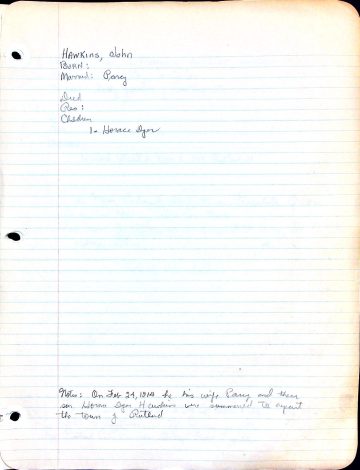 HAWKINS, John
BORN:
Married: Parcy
Died
Res:
Children
1- Horace Dyer
Notes: On Feb 24, 1814 he his wife Parcy and their
son Horace Dyer Hawkins were summoned to depart
the town of Rutland